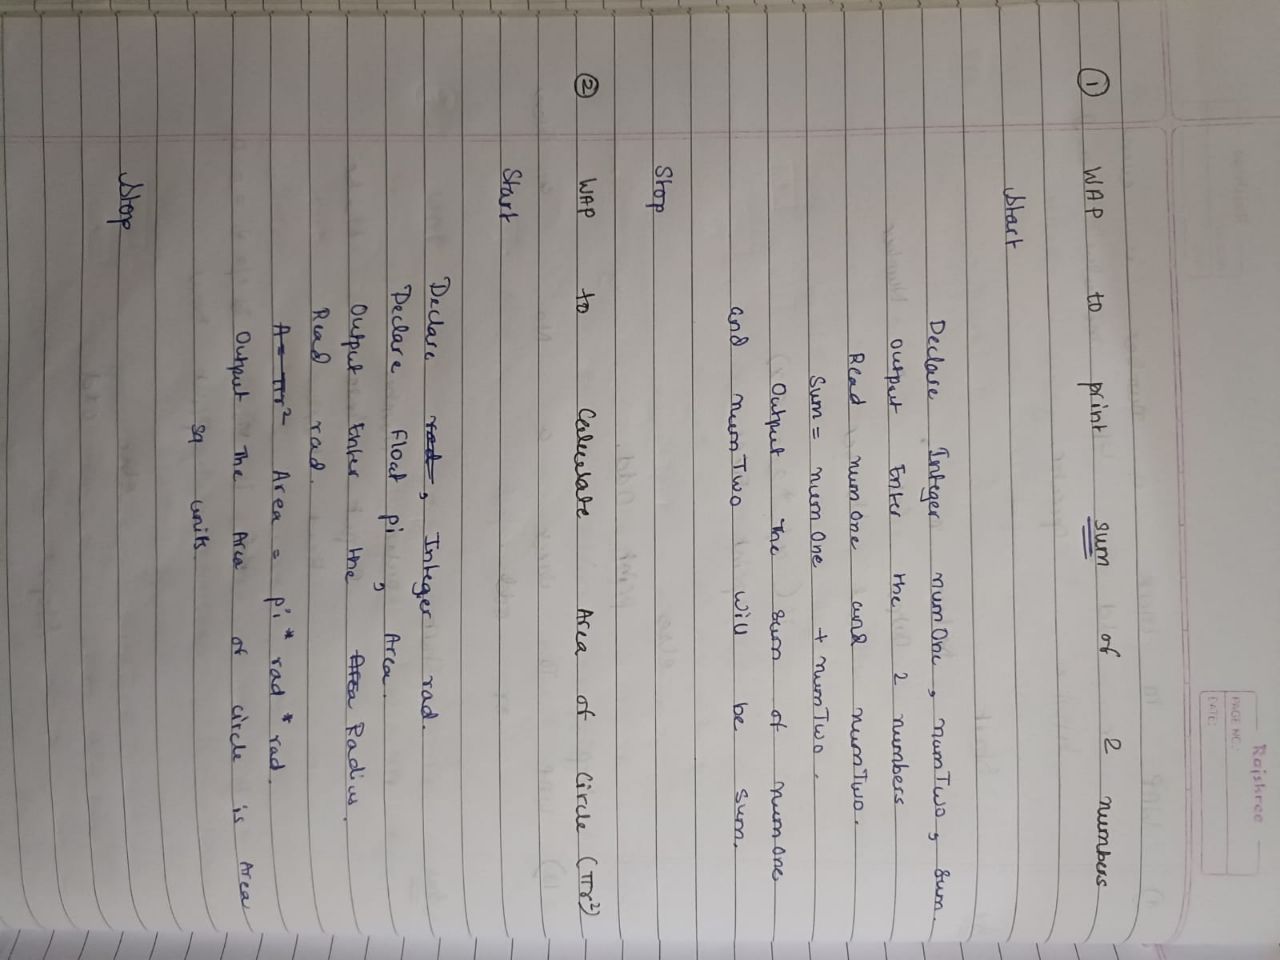 Rajshree
PAGE NO.:
DATE:
① WAP to print sum of 2 numbers
Start
Declare Integer numOne, numTwo, sum.
Output Enter the 2 numbers
Read numOne and numTwo.
Sum = numOne + numTwo.
Output The sum of numOne
and numTwo will be sum.
Stop
② WAP to Calculate Area of Circle (πr²)
Start
Declare rad, Integer rad.
Declare Float pi, Area.
Output Enter the Area Radius.
Read rad.
A = πr² Area = pi * rad * rad.
Output The Area of circle is Area
sq units
Stop